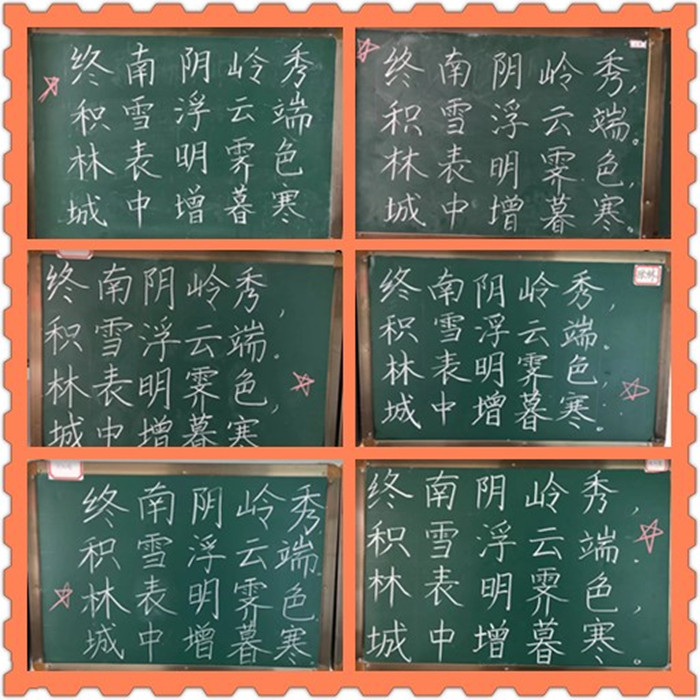 终南阴岭秀
积雪浮云端
林表明霁色
城中增暮寒
终南阴岭秀，
积雪浮云端。
林表明霁色，
城中增暮寒。
终南阴岭秀，
积雪浮云端。
林表明霁色，
城中增暮寒
终南阴岭秀，
积雪浮云端。
林表明霁色，
城中增暮寒。
终南阴岭秀，
积雪浮云端。
林表明霁色，
城中增暮寒。
终南阴岭秀，
积雪浮云端。
林表明霁色，
城中增暮寒。